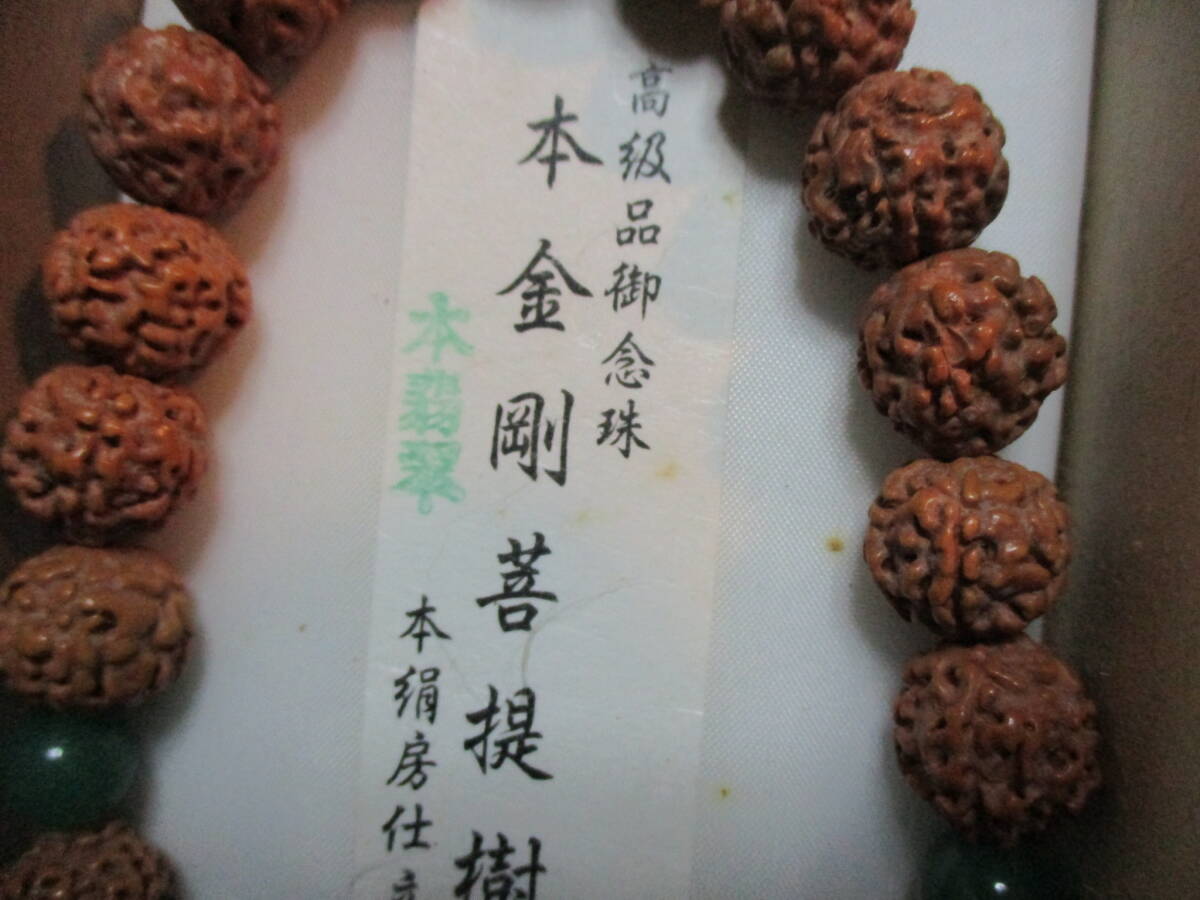 高級品御念珠
本金剛菩提樹
本翡翠
本絹房仕立